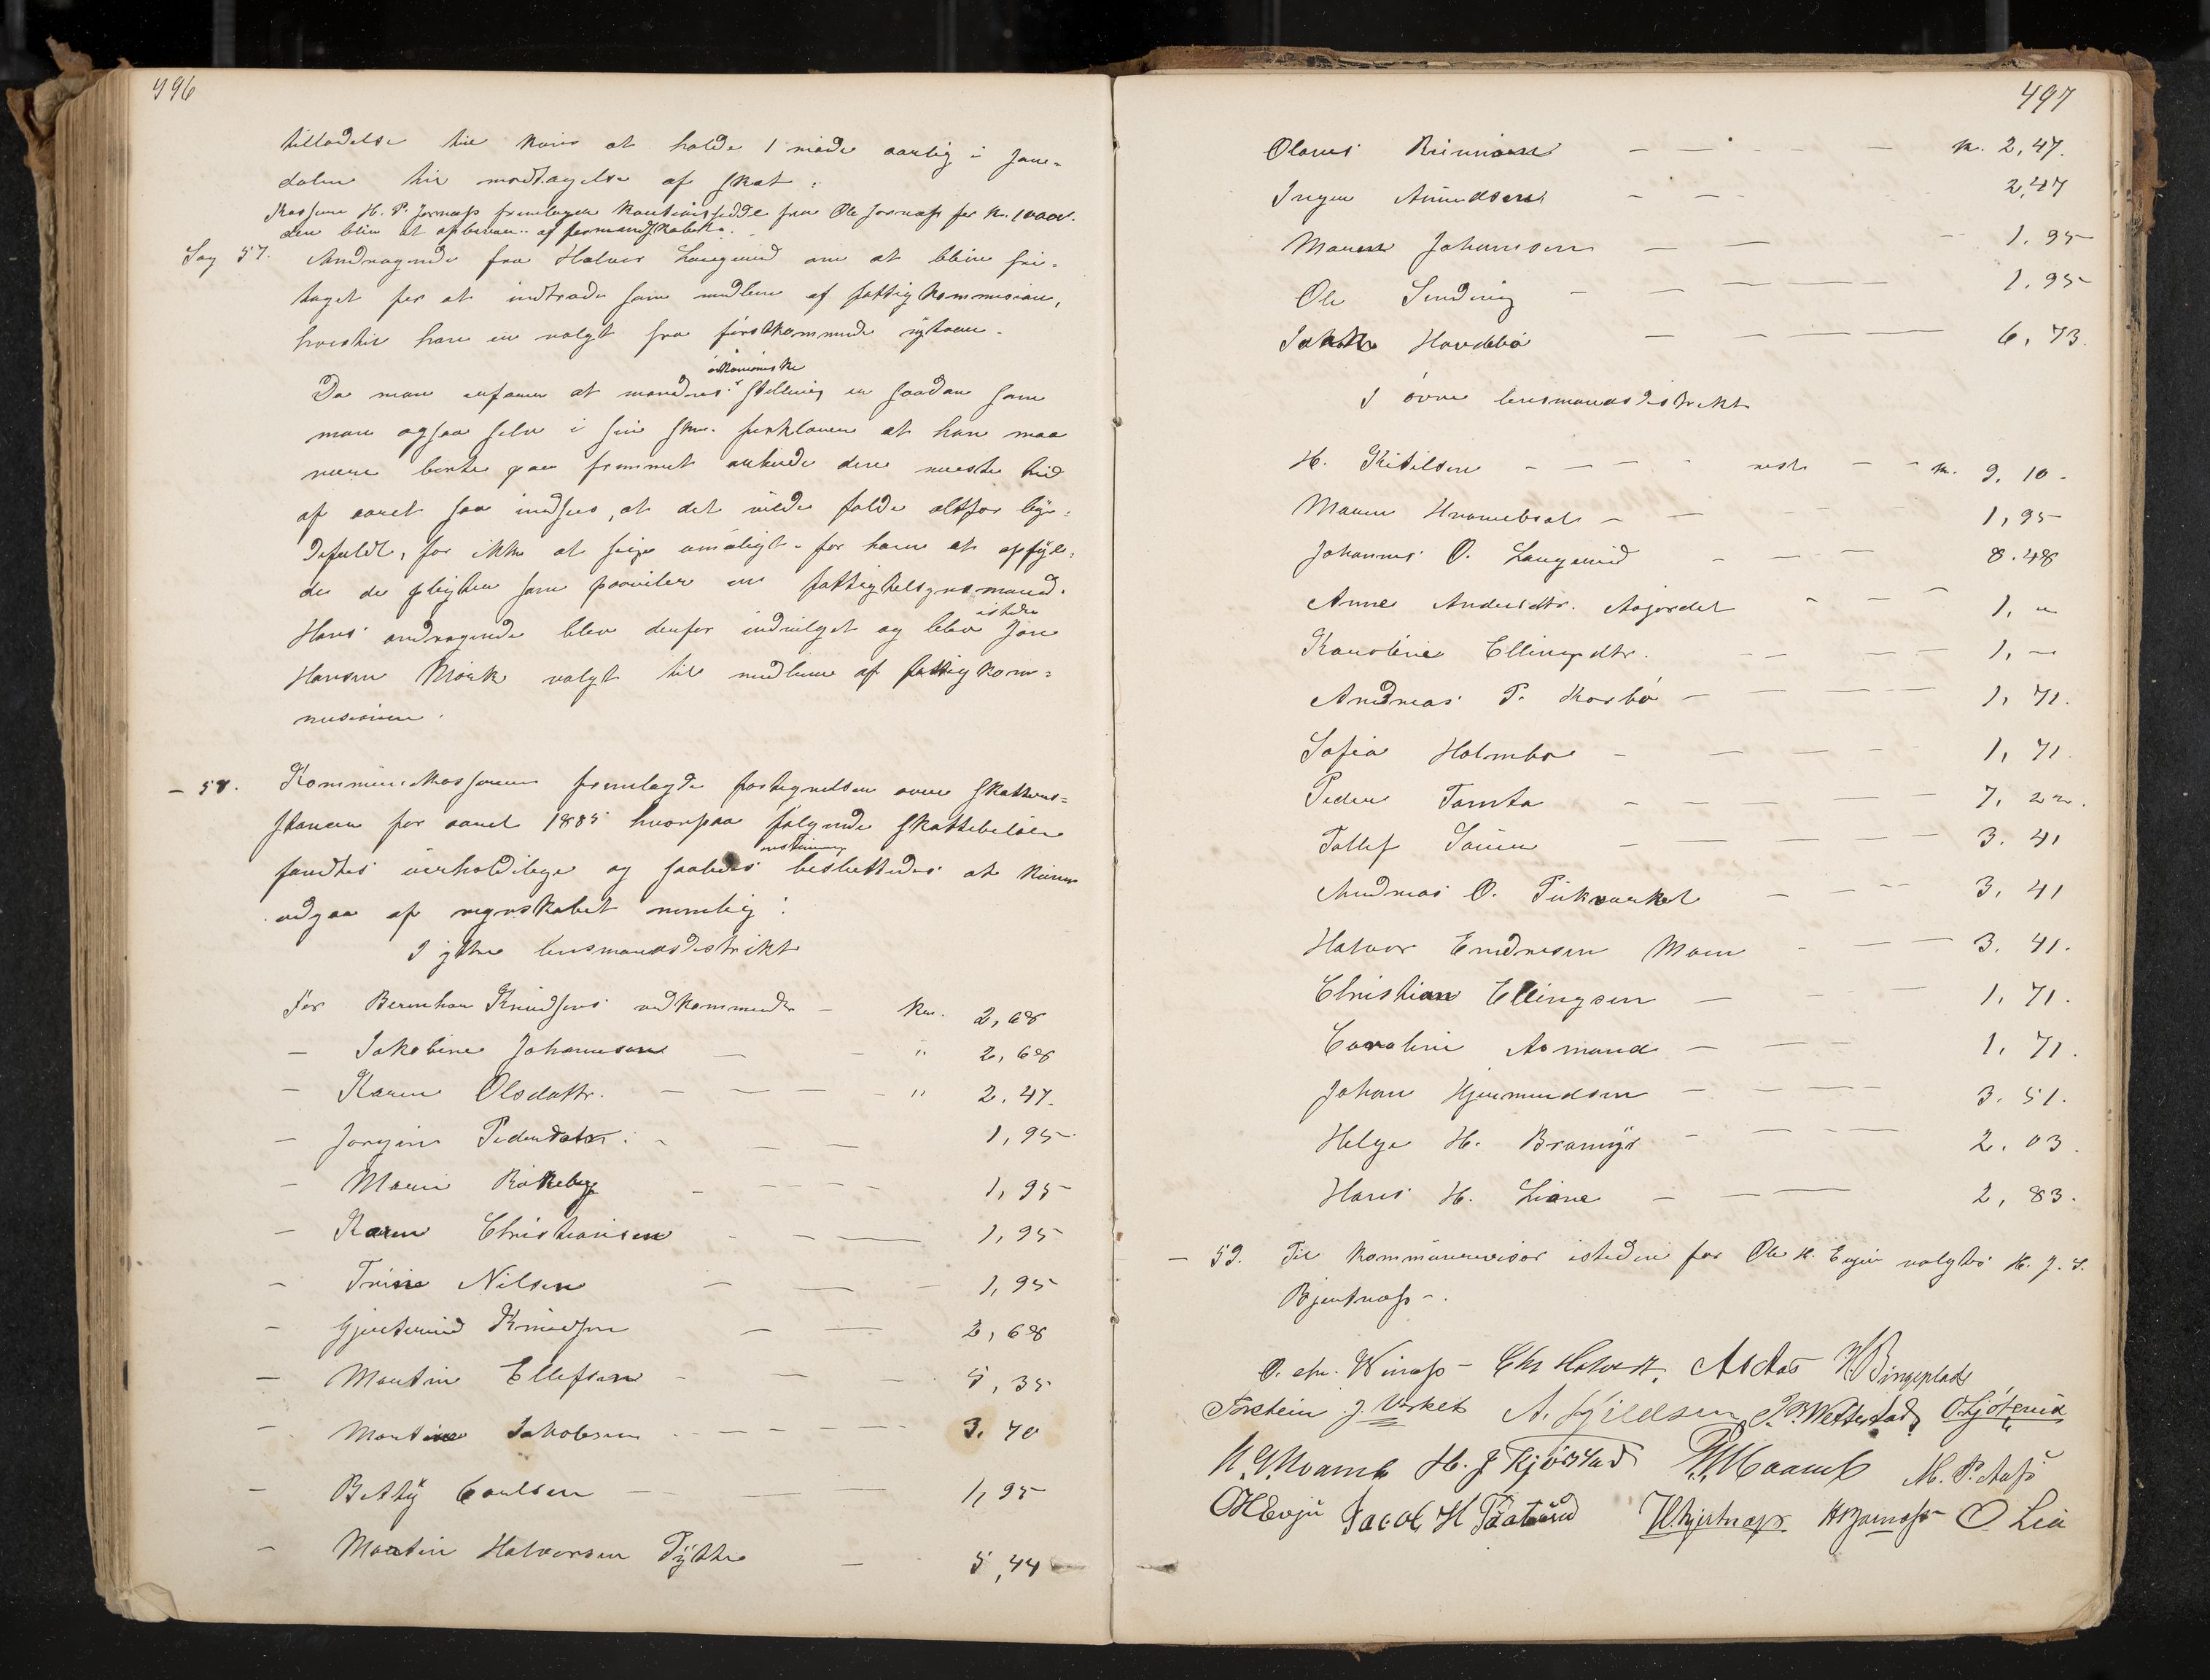 496
tilladelse til kuns at holde 1 møde aarlig i Jons=
dalen til modtagelse af skat.
Kasserer H. P. Jarnæss fremlagde kautionsseddel fra Ole Jarnæss for kr. 10000.
den blev at opbevare af formandskabet.
Sag 57. Andragende fra Halvor Langerud om at blive fri=
taget for at indtræde som medlem af fattigkommision,
hvortil han er valgt fra førstkommende nytaar.
økonomiske
Da man erfarer at mandens stilling er saadan som
man ogsaa selv i sin skr. forklarer at han maa
være borte paa fremmet arbeide den meste tid
af aaret saa indsees, at det vilde falde altfor byr=
defuldt, for ikke at sige umuligt for ham at opfyl=
de de pligter som paahviler en fattigtilsynsmand.
istedet
Hans andragende blev derfor indvilget og blev Jon
Hansen Mørk valgt til medlem af fattigkom=
missionen.
— 58. Kommunekassereren fremlagde fortegnelsen over skatterest=
stancer for aaret 1885 hvorpaa følgende skattebeløb
restancer
fandtes uerholdelige og saaledes besluttedes at kunne
udgaa af regnskabet nemlig:
I ytre lensmandsdistrikt
For Bernhar Knudsens vedkommende — Kr. 2,68
— Jakobine Johannesen — — " 2,68
— Karen Olsdattr. — — — " 2,47
— Jørgine Pedersdatr. — — — 1,95
— Maren Rikeby — — — 1,95
— Karen Christiansen — — — 1,95
— Trine Nilsen — — — 1,95
— Gjertrud Knudsen — — 2,68
— Martin Ellefsen — — — 5,35
— Martin Jakobsen — — — — 3,70
— Betty Carlsen — — — 1,95
— Martin Halvorsen Tytte — 5,44
497
Olaves — — — kr. 2,47.
Inger Amundsen — — 2,47
Maren Johannesen — — — 1,95
Ole Sending — — — — 1,95
Jakob Hovdebø — — — — 6,73
I øvre lensmandsdistrikt
H. Kittilsen — — — — reste — — kr. 9,10.
Maren — — — 1,95
Johannes O. Langerud — — — 8.48
Anne Andersdtr. Aasjordet — — — 1, "
Karoline Ellingsdtr. — — — — 1, —
Andreas P. Korbø — — — — — 1, 71.
Sofie Holmbo — — — — 1, 71
Peder Tomta — — — — — 7, 22.
Tollef — — — — 3. 41
Andreas O. — — — 3, 41
Halvor Endresen Moen — — — 3. 41.
Christian Ellingsen — — — 1, 71.
Caroline Aamand — — — 1, 71.
Johan Hjermundsen — — — — 3. 51.
Helge H. Bramyr — — — — 2. 03.
Hans H. Liane — — — 2, 83.
— 59. Til kommunerevisor isteden for Ole H. Evju valgtes H. J. S.
Bjertnæss.
O. Chr. Winæss — Chr Holst. H. Bingeplads
Torstein J. Verket A. Gjeldsen Wetterstad O. Ljøterud
N. G. Kvamb H. J. Kjørstad M. P. Aas
O H Evju Jacob H Taaterud H Bjertnæss H P Jarnæss O. Lia